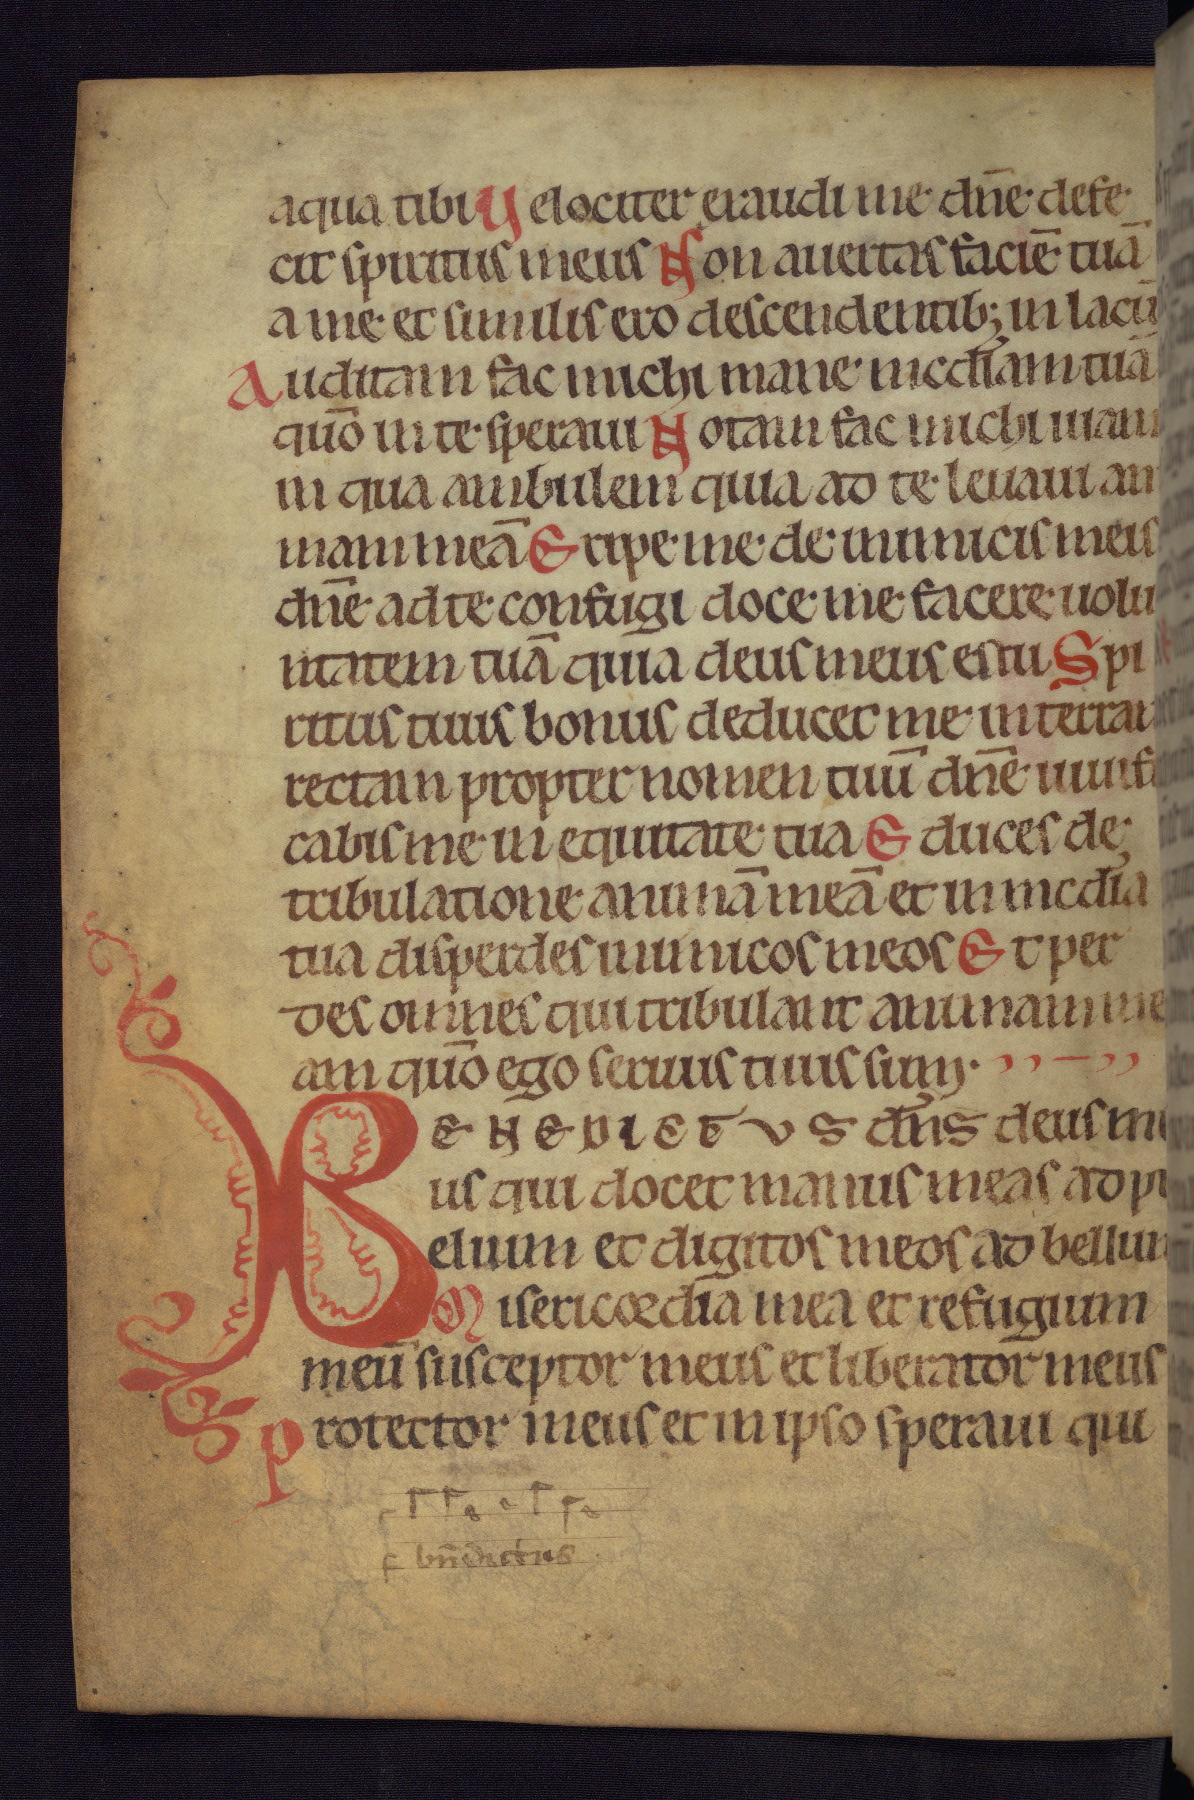 aqua tibi Velociter exaudi me dn̄e defe
cit spiritus meus Non auertas faciē tuā
a me et similis ero descendentib; in lacū
Auditam fac michi mane mc̄diam tuā
qūo in te speraui Notam fac michi uiam
in qua ambulem quia ad te leuaui ani
mam meā Eripe me de inimicis meis
dn̄e ad te confugi doce me facere uolu
ntatem tuā quia deus meus es tu Spi
ritus tuus bonus deducet me in terram
rectam propter nomen tuū dn̄e uiuifi
cabis me in equitate tua Educes de
tribulatione animā meā et in mc̄dia
tua disperdes inimicos meos Et per
des omnes qui tribulant animam me
am qūo ego seruus tuus sum
BENEDICTVS dn̄s deus me
us qui docet manus meas ad pr
elium et digitos meos ad bellum
Misericordia mea et refugium
meū susceptor meus et liberator meus
Protector meus et in ipso speraui qui
bn̄dictus